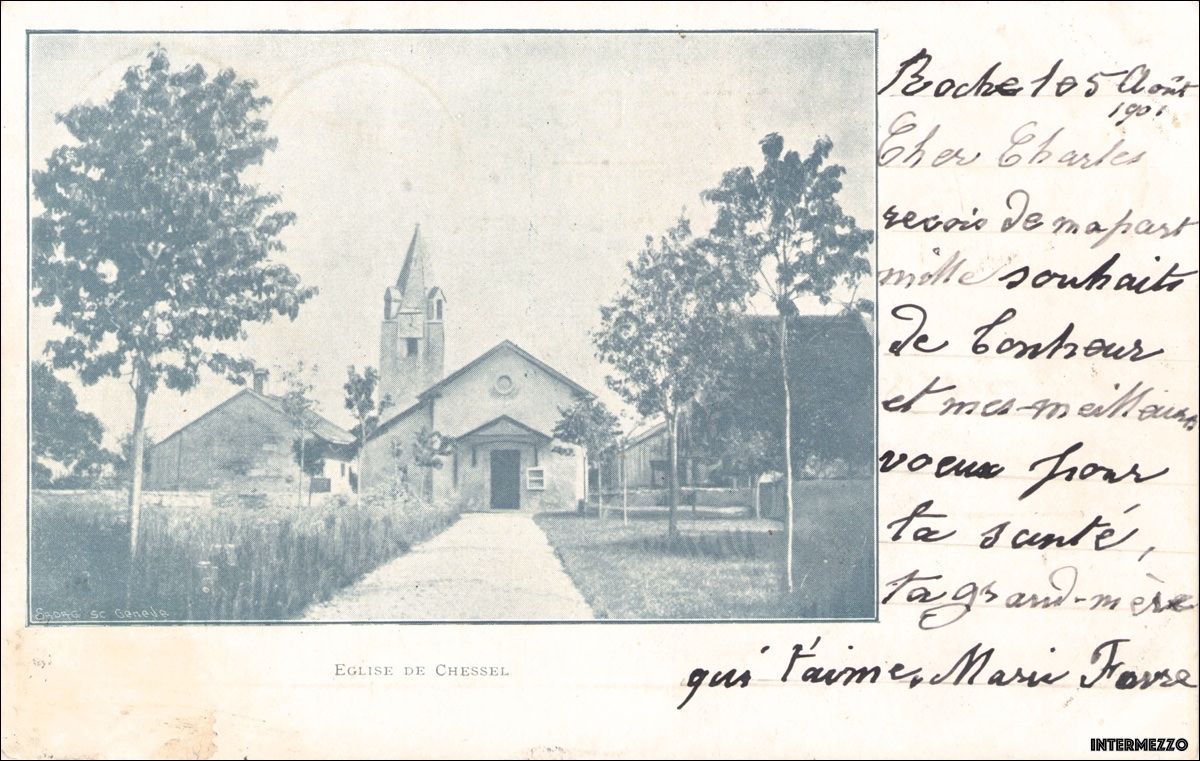 Roche le 5 Août
1901
Cher Charles
reçois de ma part
mille souhaits
de bonheur
et mes meilleurs
voeux pour
ta santé,
ta grand-mère
qui t'aime, Marie Favre
SADAG SC Genève
EGLISE DE CHESSEL
INTERMEZZO